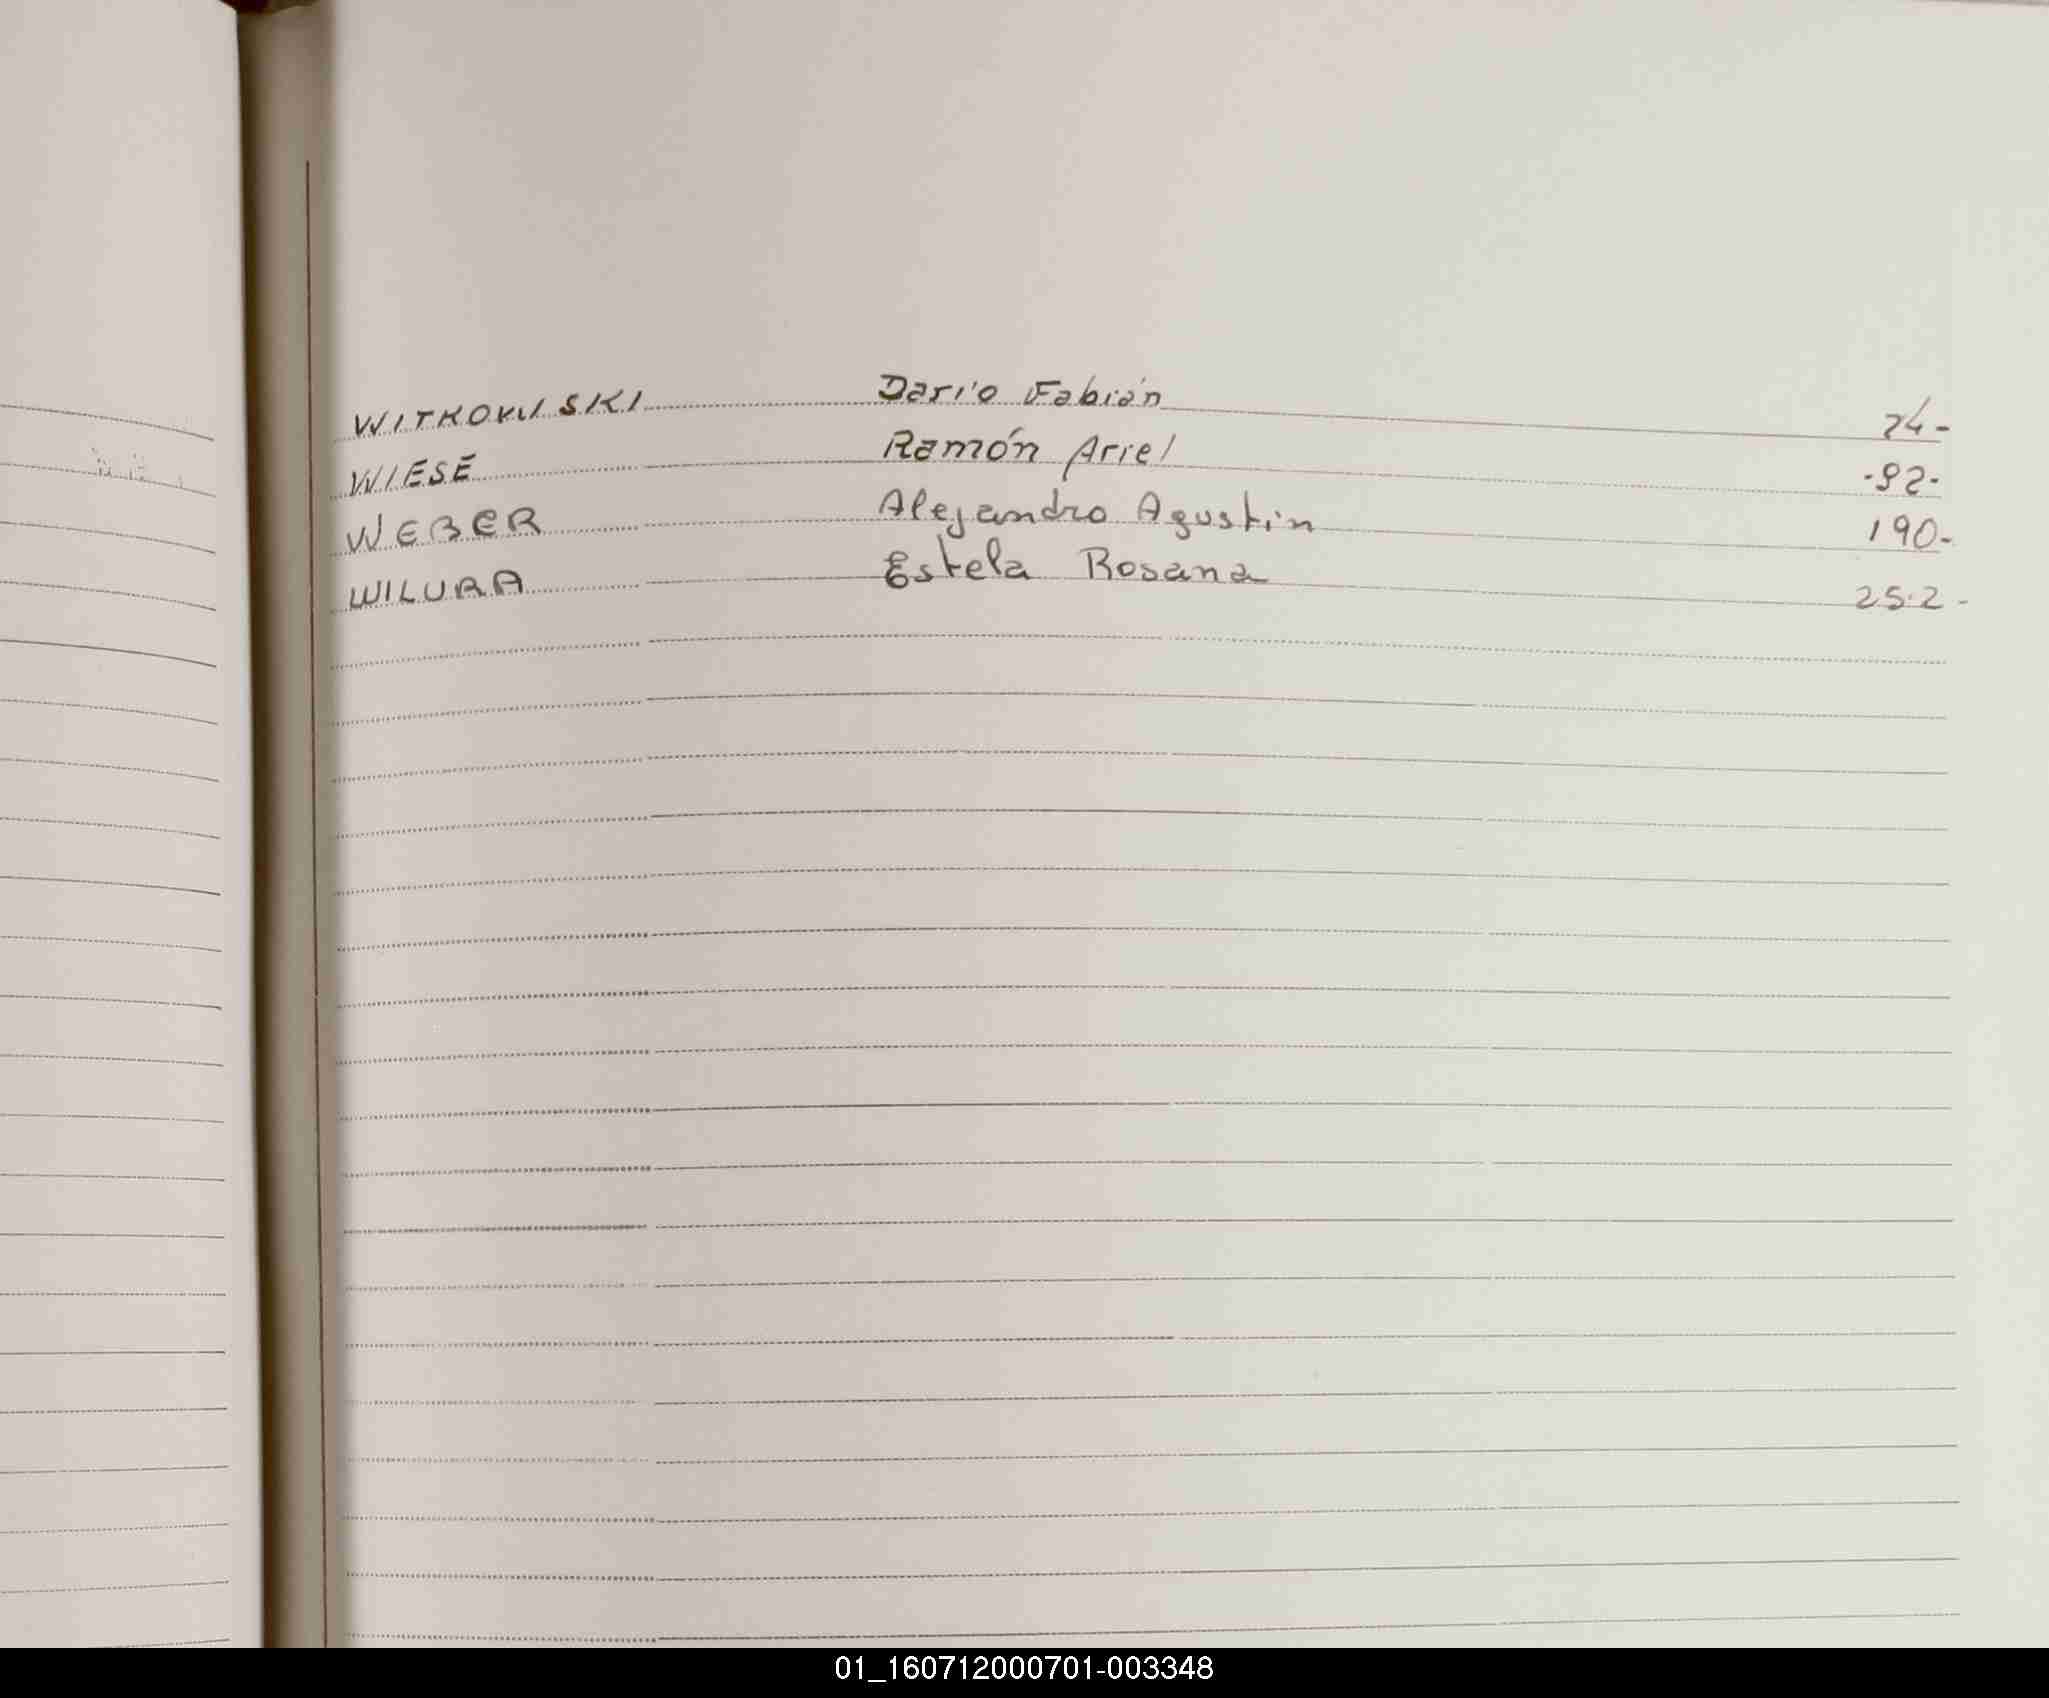 WITKOWSKI Darío Fabián 24-
WIESE Ramón Ariel -92-
WEBER Alejandro Agustin 190-
WILURA Estela Rosana 252-
01_160712000701-003348